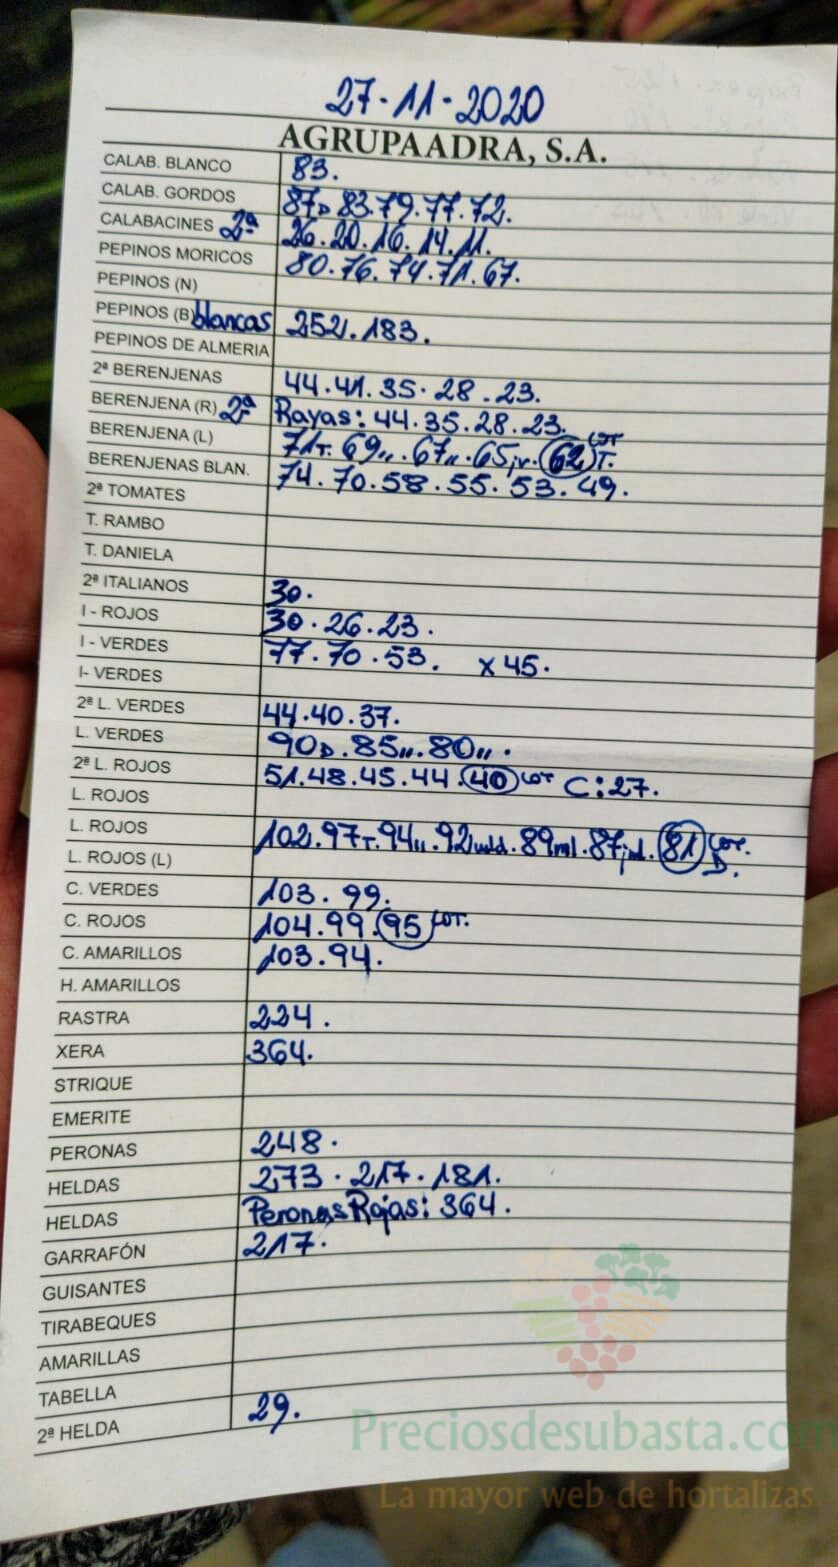 27-11-2020
AGRUPAADRA, S.A.
CALAB. BLANCO 83.
CALAB. GORDOS 87D 83.79.77.72.
CALABACINES 2ª 26.20.16.14.11.
PEPINOS MORICOS 80.76.74.71.67.
PEPINOS (N)
PEPINOS (B) blancas 252.183.
PEPINOS DE ALMERIA
2ª BERENJENAS 44.41.35.28.23.
BERENJENA (R) 2ª Rayas: 44.35.28.23.
BERENJENA (L) 71T.69,,.67,,.65 62 COT T.
BERENJENAS BLAN. 74.70.58.55.53.49.
2ª TOMATES
T. RAMBO
T. DANIELA
2ª ITALIANOS 30.
I - ROJOS 30.26.23.
I - VERDES 77.70.53. x45.
I- VERDES
2ª L. VERDES 44.40.37.
L. VERDES 90D.85,,.80,,.
2ª L. ROJOS 51.48.45.44.40 COT C:27.
L. ROJOS
L. ROJOS 102.97T.94,,.92 89 87 81 COT. D.
L. ROJOS (L)
C. VERDES 103.99.
C. ROJOS 104.99.95 COT.
C. AMARILLOS 103.94.
H. AMARILLOS
RASTRA 224.
XERA 364.
STRIQUE
EMERITE
PERONAS 248.
HELDAS 273.217.181.
HELDAS Peronas Rojas: 364.
GARRAFÓN 217.
GUISANTES
TIRABEQUES
AMARILLAS
TABELLA
2ª HELDA 29.
Preciosdesubasta.com
La mayor web de hortalizas